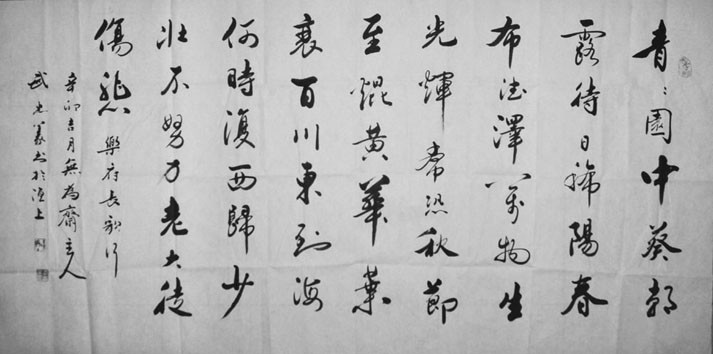 青〻園中葵朝
露待日晞陽春
布德澤萬物生
光輝常恐秋節
至焜黃華葉
衰百川東到海
何時復西歸少
壯不努力老大徒
傷悲 樂府長歌行
辛卯吉月無為齋主人
武光義书於上